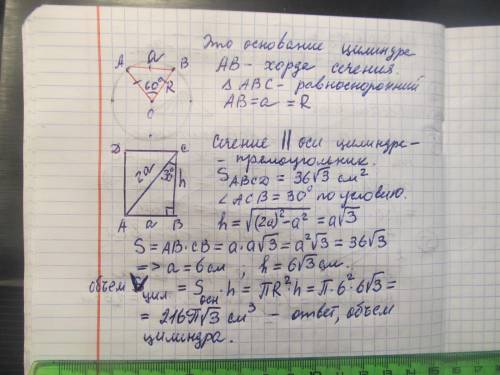 Это основание цилиндра
АВ - хорда сечения.
Δ АВС - равносторонний
АВ = а = R
A a B
60° R
O
Сечение || оси цилиндра -
- прямоугольник.
S ABCD = 36√3 см²
∠ACB = 30° по условию.
h = √((2a)² - a²) = a√3
D C
2a 30° h
A a B
S = AB · CB = a · a√3 = a²√3 = 36√3
=> a = 6 см, h = 6√3 см.
объем V цил = S осн · h = πR² · h = π · 6² · 6√3 =
= 216π√3 см³ - ответ, объем
цилиндра.